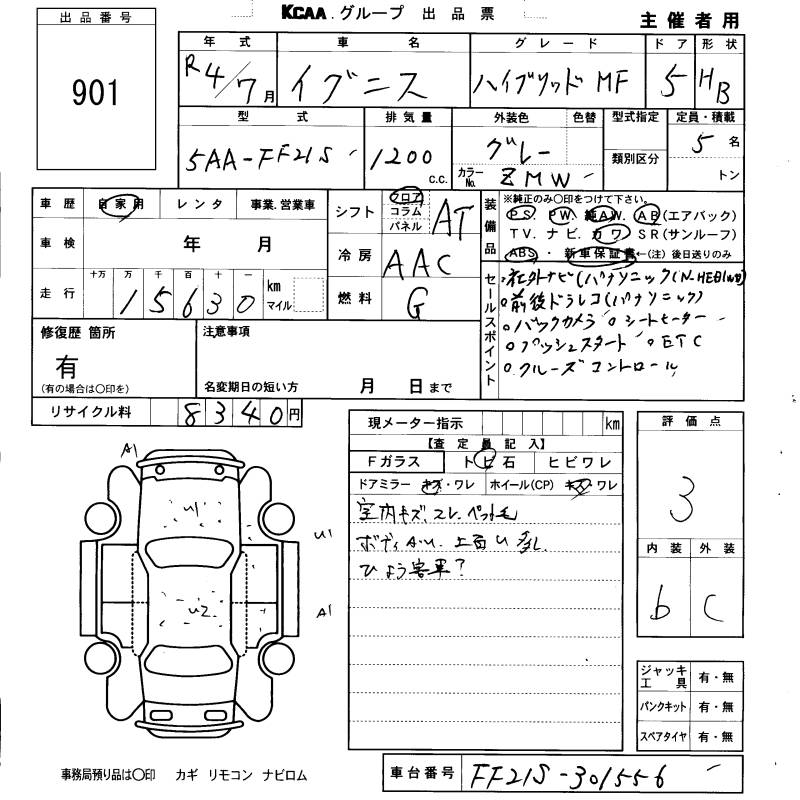 KCAA.グループ 出品票
主催者用
出品番号
901
年式 車名 グレード ドア 形状
R4/7月 イグニス ハイブリッド MF 5 HB
型式 排気量 外装色 色替 型式指定 定員・積載
類別区分
5AA-FF21S 1200 c.c. グレー 5名
カラーNo. ZMW トン
車歴 自家用 レンタ 事業.営業車
車検 年 月
走行 十万 万 千 百 十 一
15630 km マイル
シフト フロア コラム パネル AT
冷房 AAC
燃料 G
装備品
※純正のみ〇印をつけて下さい。
PS PW. 純AW. AB(エアバック)
TV. ナビ. カワ SR(サンルーフ)
ABS・ 新車保証書←(注)後日送りのみ
セールスポイント
社外ナビ(パナソニック(N-HE01WD)
前後ドラレコ(パナソニック)
バックカメラ シートヒーター
プッシュスタート ETC
クルーズコントロール
修復歴 箇所
有
(有の場合は〇印を)
注意事項
名変期日の短い方 月 日まで
リサイクル料 8340円
現メーター指示 km
【査定員記入】
Fガラス トビ石 ヒビワレ
ドアミラー キズ・ワレ ホイール(CP) キズ・ワレ
室内キズ、スレ、ペット毛
ボディAU. 上面U多し
ひょう害車?
評価点
3
内装 外装
b C
A1
U1
U1
U2
A1
ジャッキ工具 有・無
パンクキット 有・無
スペアタイヤ 有・無
事務局預り品は〇印 カギ リモコン ナビロム
車台番号 FF21S-301556